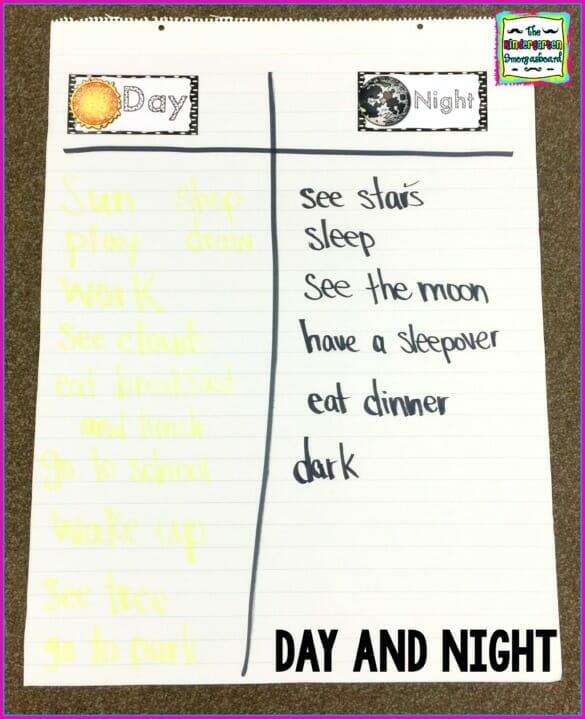 The
Kindergarten
Smorgasboard
Day
Night
Sun shop
play draw
work
see clouds
eat breakfast
and lunch
go to school
wake up
see tree
go to park
see stars
sleep
see the moon
have a sleepover
eat dinner
dark
DAY AND NIGHT